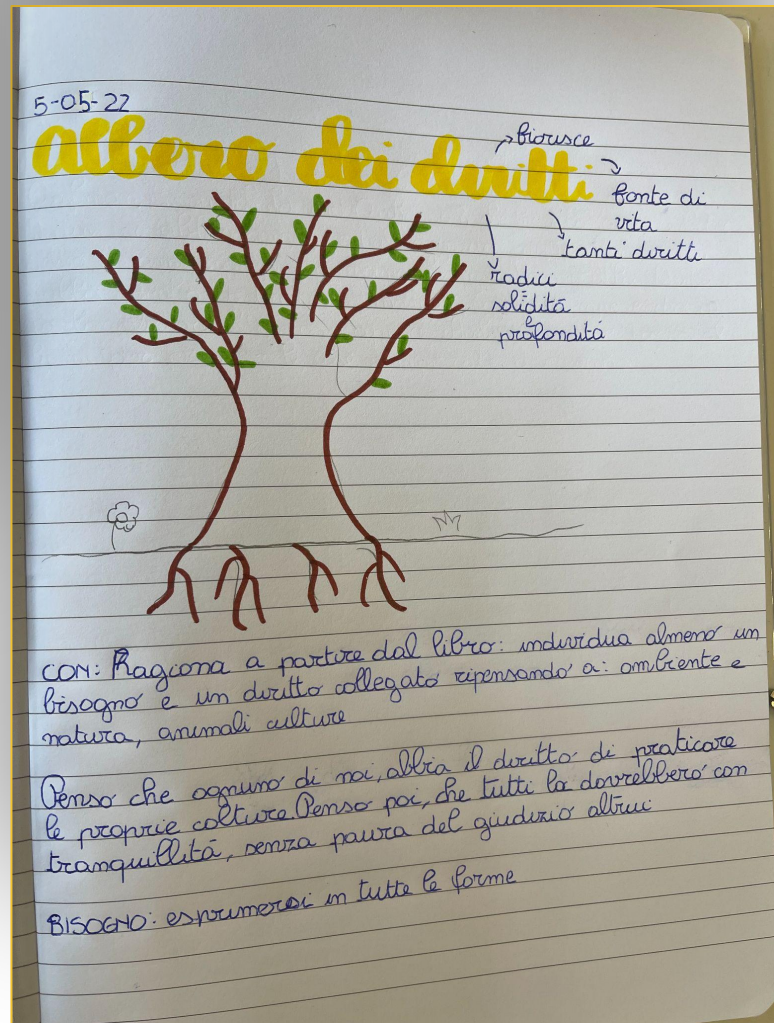 5-05-22
albero dei diritti
fiorisce
fonte di
vita
tanti diritti
radici
solidità
e
profondità
CON: Ragiona a partire dal libro: individua almeno un
bisogno e un diritto collegato ripensando a: ambiente e
natura, animali culture
Penso che ognuno di noi, abbia il diritto di praticare
le proprie colture. Penso poi, che tutti lo dovrebbero con
tranquillità, senza paura del giudizio altrui
BISOGNO: esprimersi in tutte le forme